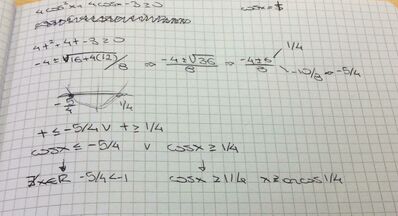 4cos²x+4cosx-3≥0 cosx=t
4t²+4t-3≥0
-4±√16+4(12)/8 ⇒ -4±√36/8 ⇒ -4±6/8 1/4 -10/8 ⇒ -5/4
-5/4 1/4
t≤-5/4 ∨ t≥1/4
cosx≤-5/4 ∨ cosx≥1/4
∄x∈R -5/4<-1 cosx≥1/4 x≥arcos1/4